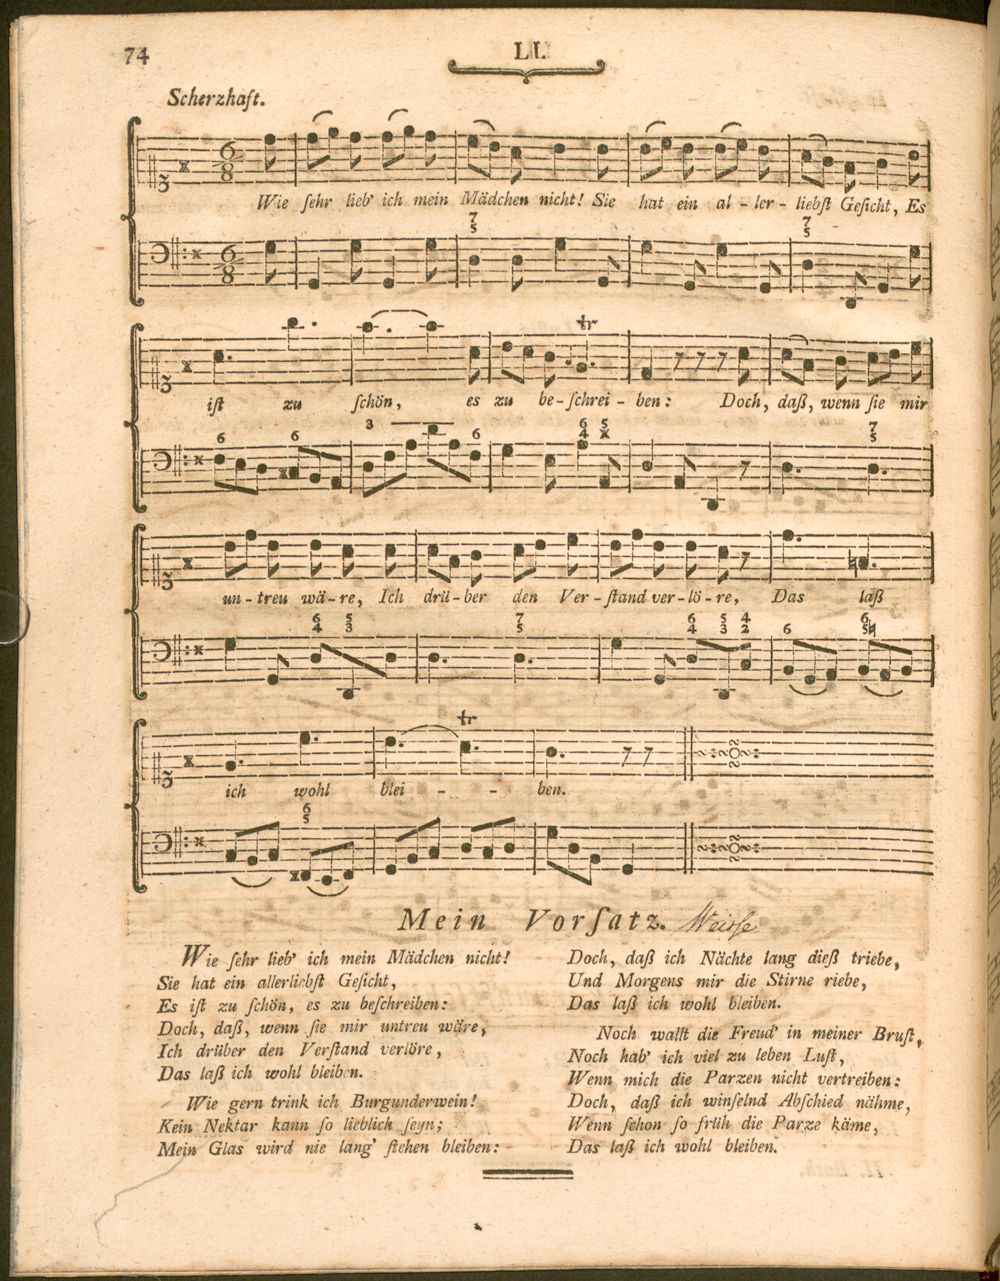 74
LI.
Scherzhaft.
Wie ſehr lieb' ich mein Mädchen nicht! Sie hat ein al - ler - liebſt Geſicht, Es
iſt zu ſchön, es zu be - ſchrei - ben: Doch, daß, wenn ſie mir
un - treu wä - re, Ich drü - ber den Ver - ſtand ver - lö - re, Das laß
ich wohl blei - - - ben.
Mein Vorſatz. Weiße
Wie ſehr lieb' ich mein Mädchen nicht!
Sie hat ein allerliebſt Geſicht,
Es iſt zu ſchön, es zu beſchreiben:
Doch, daß, wenn ſie mir untreu wäre,
Ich drüber den Verſtand verlöre,
Das laß ich wohl bleiben.
Wie gern trink ich Burgunderwein!
Kein Nektar kann ſo lieblich ſeyn;
Mein Glas wird nie lang' ſtehen bleiben:
Doch, daß ich Nächte lang dieß triebe,
Und Morgens mir die Stirne riebe,
Das laß ich wohl bleiben.
Noch wallt die Freud' in meiner Bruſt,
Noch hab' ich viel zu leben Luſt,
Wenn mich die Parzen nicht vertreiben:
Doch, daß ich winſelnd Abſchied nähme,
Wenn ſchon ſo früh die Parze käme,
Das laß ich wohl bleiben.